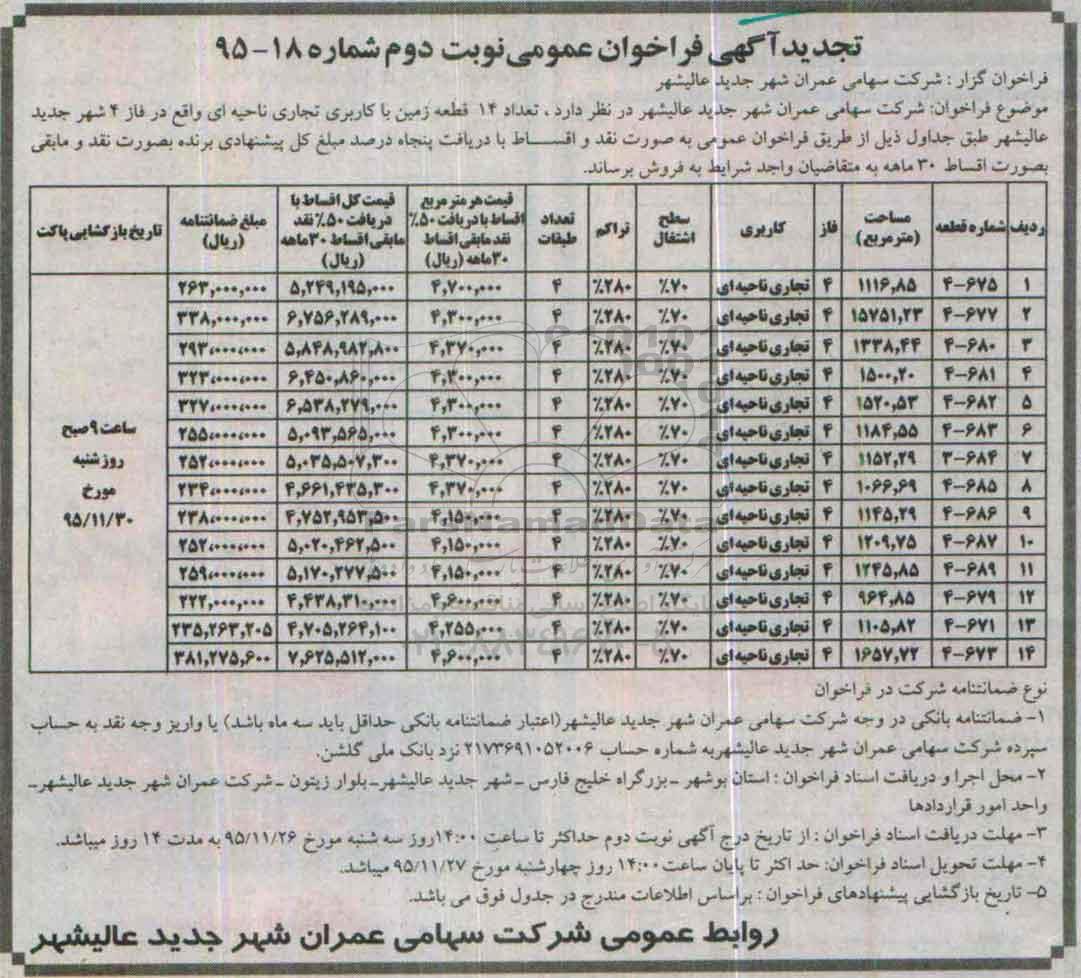 تجدید آگهی فراخوان عمومی نوبت دوم شماره ۱۸-۹۵
فراخوان گزار : شرکت سهامی عمران شهر جدید عالیشهر
موضوع فراخوان: شرکت سهامی عمران شهر جدید عالیشهر در نظر دارد ، تعداد ۱۴ قطعه زمین با کاربری تجاری ناحیه ای واقع در فاز ۴ شهر جدید
عالیشهر طبق جداول ذیل از طریق فراخوان عمومی به صورت نقد و اقساط با دریافت پنجاه درصد مبلغ کل پیشنهادی برنده بصورت نقد و مابقی
بصورت اقساط ۳۰ ماهه به متقاضیان واجد شرایط به فروش برساند.
ردیف شماره قطعه مساحت (مترمربع) فاز کاربری سطح اشتغال تراکم تعداد طبقات قیمت هر متر مربع اقساط با دریافت ۵۰٪ نقد مابقی اقساط ۳۰ماهه (ریال) قیمت کل اقساط با دریافت ۵۰٪ نقد مابقی اقساط ۳۰ماهه (ریال) مبلغ ضمانتنامه (ریال) تاریخ بازگشایی پاکت
۱ ۴-۶۷۵ ۱۱۱۶,۸۵ ۴ تجاری ناحیه ای ۷۰٪ ۲۸۰٪ ۴ ۴,۷۰۰,۰۰۰ ۵,۲۴۹,۱۹۵,۰۰۰ ۲۶۳,۰۰۰,۰۰۰
۲ ۴-۶۷۷ ۱۵۷۵۱,۲۳ ۴ تجاری ناحیه ای ۷۰٪ ۲۸۰٪ ۴ ۴,۳۰۰,۰۰۰ ۶,۷۵۶,۲۸۹,۰۰۰ ۳۳۸,۰۰۰,۰۰۰
۳ ۴-۶۸۰ ۱۳۳۸,۴۴ ۴ تجاری ناحیه ای ۷۰٪ ۲۸۰٪ ۴ ۴,۳۷۰,۰۰۰ ۵,۸۴۸,۹۸۲,۸۰۰ ۲۹۳,۰۰۰,۰۰۰
۴ ۴-۶۸۱ ۱۵۰۰,۲۰ ۴ تجاری ناحیه ای ۷۰٪ ۲۸۰٪ ۴ ۴,۳۰۰,۰۰۰ ۶,۴۵۰,۸۶۰,۰۰۰ ۳۲۳,۰۰۰,۰۰۰
۵ ۴-۶۸۲ ۱۵۲۰,۵۳ ۴ تجاری ناحیه ای ۷۰٪ ۲۸۰٪ ۴ ۴,۳۰۰,۰۰۰ ۶,۵۳۸,۲۷۹,۰۰۰ ۳۲۷,۰۰۰,۰۰۰
۶ ۴-۶۸۳ ۱۱۸۴,۵۵ ۴ تجاری ناحیه ای ۷۰٪ ۲۸۰٪ ۴ ۴,۳۰۰,۰۰۰ ۵,۰۹۳,۵۶۵,۰۰۰ ۲۵۵,۰۰۰,۰۰۰
۷ ۳-۶۸۴ ۱۱۵۲,۲۹ ۴ تجاری ناحیه ای ۷۰٪ ۲۸۰٪ ۴ ۴,۳۷۰,۰۰۰ ۵,۰۳۵,۵۰۷,۳۰۰ ۲۵۲,۰۰۰,۰۰۰
۸ ۴-۶۸۵ ۱۰۶۶,۶۹ ۴ تجاری ناحیه ای ۷۰٪ ۲۸۰٪ ۴ ۴,۳۷۰,۰۰۰ ۴,۶۶۱,۴۳۵,۳۰۰ ۲۳۴,۰۰۰,۰۰۰
۹ ۴-۶۸۶ ۱۱۴۵,۲۹ ۴ تجاری ناحیه ای ۷۰٪ ۲۸۰٪ ۴ ۴,۱۵۰,۰۰۰ ۴,۷۵۲,۹۵۳,۵۰۰ ۲۳۸,۰۰۰,۰۰۰
۱۰ ۴-۶۸۷ ۱۲۰۹,۷۵ ۴ تجاری ناحیه ای ۷۰٪ ۲۸۰٪ ۴ ۴,۱۵۰,۰۰۰ ۵,۰۲۰,۴۶۲,۵۰۰ ۲۵۲,۰۰۰,۰۰۰
۱۱ ۴-۶۸۹ ۱۲۴۵,۸۵ ۴ تجاری ناحیه ای ۷۰٪ ۲۸۰٪ ۴ ۴,۱۵۰,۰۰۰ ۵,۱۷۰,۲۷۷,۵۰۰ ۲۵۹,۰۰۰,۰۰۰
۱۲ ۴-۶۷۹ ۹۶۴,۸۵ ۴ تجاری ناحیه ای ۷۰٪ ۲۸۰٪ ۴ ۴,۶۰۰,۰۰۰ ۴,۴۳۸,۳۱۰,۰۰۰ ۲۲۲,۰۰۰,۰۰۰
۱۳ ۴-۶۷۱ ۱۱۰۵,۸۲ ۴ تجاری ناحیه ای ۷۰٪ ۲۸۰٪ ۴ ۴,۲۵۵,۰۰۰ ۴,۷۰۵,۲۶۴,۱۰۰ ۲۳۵,۲۶۳,۲۰۵
۱۴ ۴-۶۷۳ ۱۶۵۷,۷۲ ۴ تجاری ناحیه ای ۷۰٪ ۲۸۰٪ ۴ ۴,۶۰۰,۰۰۰ ۷,۶۲۵,۵۱۲,۰۰۰ ۳۸۱,۲۷۵,۶۰۰
ساعت ۹ صبح
روز شنبه
مورخ
۹۵/۱۱/۳۰
نوع ضمانتنامه شرکت در فراخوان
۱- ضمانتنامه بانکی در وجه شرکت سهامی عمران شهر جدید عالیشهر(اعتبار ضمانتنامه بانکی حداقل باید سه ماه باشد) یا واریز وجه نقد به حساب
سپرده شرکت سهامی عمران شهر جدید عالیشهربه شماره حساب ۲۱۷۳۶۹۱۰۵۲۰۰۶ نزد بانک ملی گلشن.
۲- محل اجرا و دریافت اسناد فراخوان : استان بوشهر -بزرگراه خلیج فارس -شهر جدید عالیشهر-بلوار زیتون -شرکت عمران شهر جدید عالیشهر-
واحد امور قراردادها
۳- مهلت دریافت اسناد فراخوان : از تاریخ درج آگهی نوبت دوم حداکثر تا ساعت ۱۴:۰۰روز سه شنبه مورخ ۹۵/۱۱/۲۶ به مدت ۱۴ روز میباشد.
۴- مهلت تحویل اسناد فراخوان: حد اکثر تا پایان ساعت ۱۴:۰۰ روز چهارشنبه مورخ ۹۵/۱۱/۲۷ میباشد.
۵- تاریخ بازگشایی پیشنهادهای فراخوان : براساس اطلاعات مندرج در جدول فوق می باشد.
روابط عمومی شرکت سهامی عمران شهر جدید عالیشهر